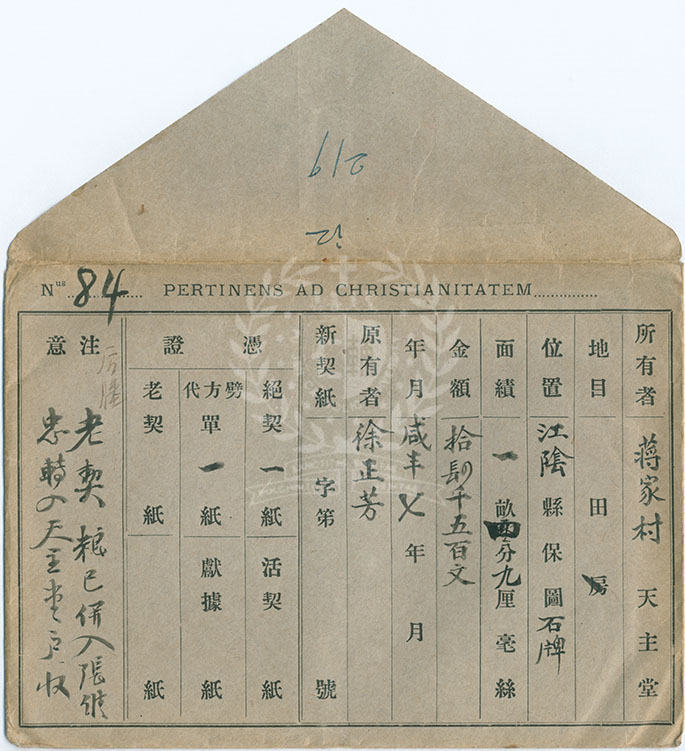 219
N^us 84 PERTINENS AD CHRISTIANITATEM
所有者 蔣家村 天主堂
地目 田 房
位置 江陰縣 保 圖 石牌
面績 一畝 分九厘 毫 絲
金額 拾肆千五百文
年月 咸丰七年 月
原有者 徐正芳
新契紙 字第 號
憑證
絕契 一紙 活契 紙
劈方代單 一紙 獻據 紙
老契 紙 紙
注意
老契粮已併入張
忠轉入天主堂户收